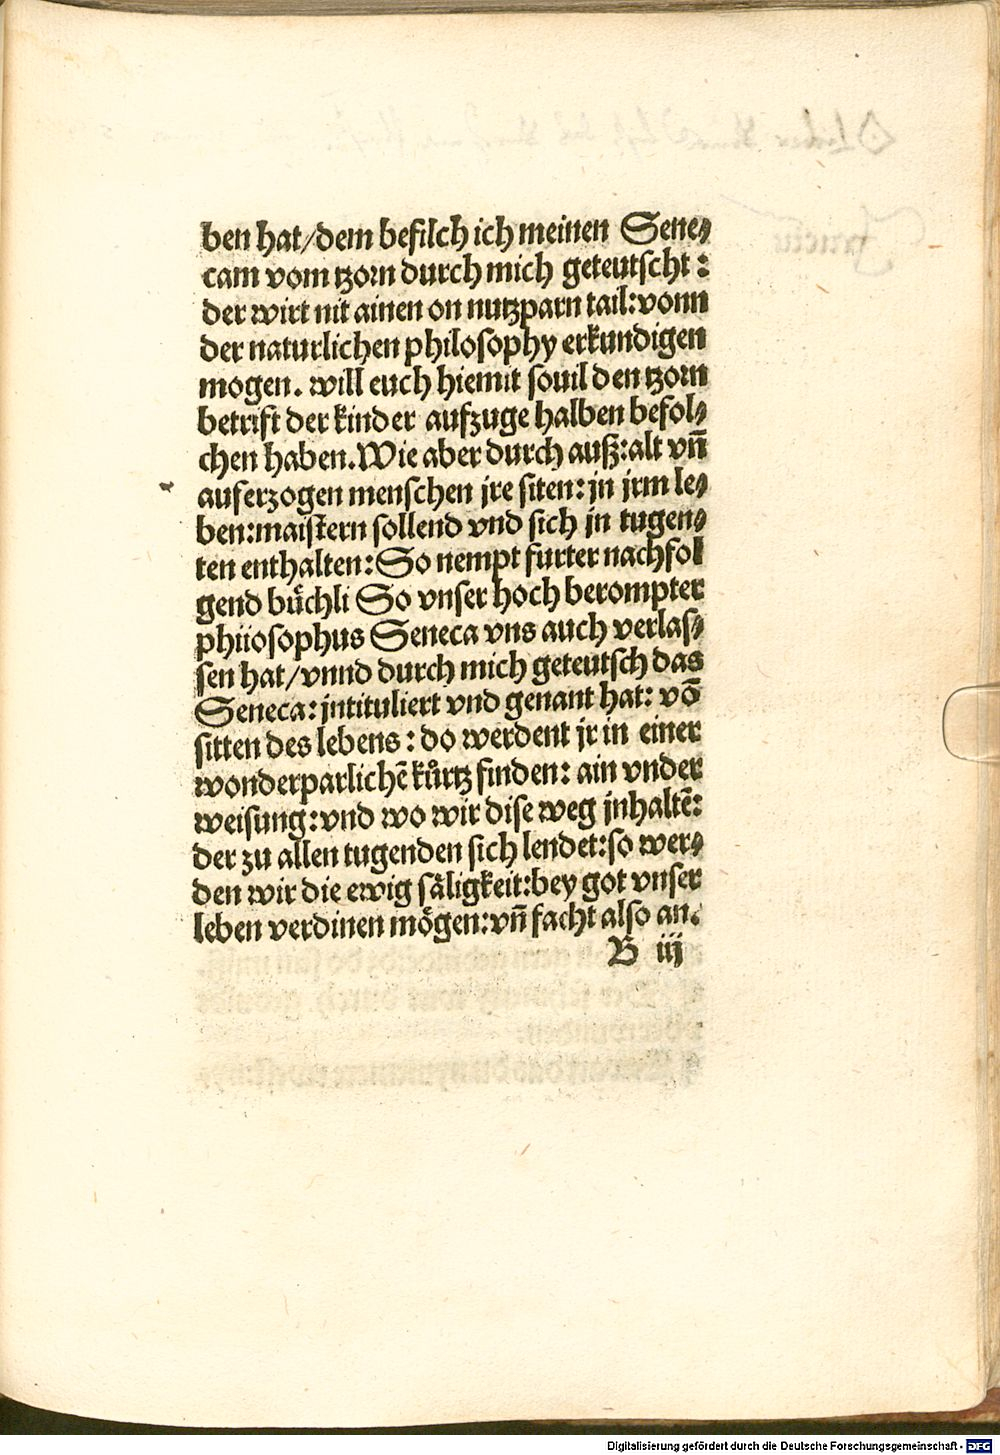 ben hat/dem befilch ich meinen Sene⸗
cam vom tzorn durch mich geteutscht:
der wirt nit ainen on nutzparn tail:vonn
der naturlichen philosophy erkundigen
mogen. will euch hiemit souil den tzorn
betrift der kinder aufzuge halben befol⸗
chen haben.Wie aber durch auß:alt vn̄
auferzogen menschen jre siten:jn jrm le⸗
ben:maistern sollend vnd sich jn tugen⸗
ten enthalten:So nempt furter nachfol
gend bu᷑chli So vnser hoch berompter
phiiosophus Seneca vns auch verlas⸗
sen hat/vnnd durch mich geteutsch das
Seneca:jntituliert vnd genant hat: vō
sitten des lebens:do werdent jr in einer
wonderparlichē kůrtz finden: ain vnder
weisung:vnd wo wir dise weg jnhaltē:
der zu allen tugenden sich lendet:so wer⸗
den wir die ewig säligkeit:bey got vnser
leben verdinen mögen:vn̄ facht also an.
B iij
Digitalisierung gefördert durch die Deutsche Forschungsgemeinschaft - DFG